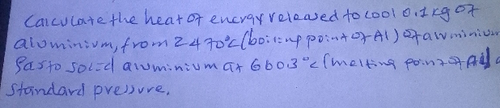 Calculate the heat of energy released to cool 0.1kg of
aluminium, from 2470°c (boiling point of Al) of aluminium
gas to solid aluminium at 660.3°c (melting point of Al)
standard pressure.